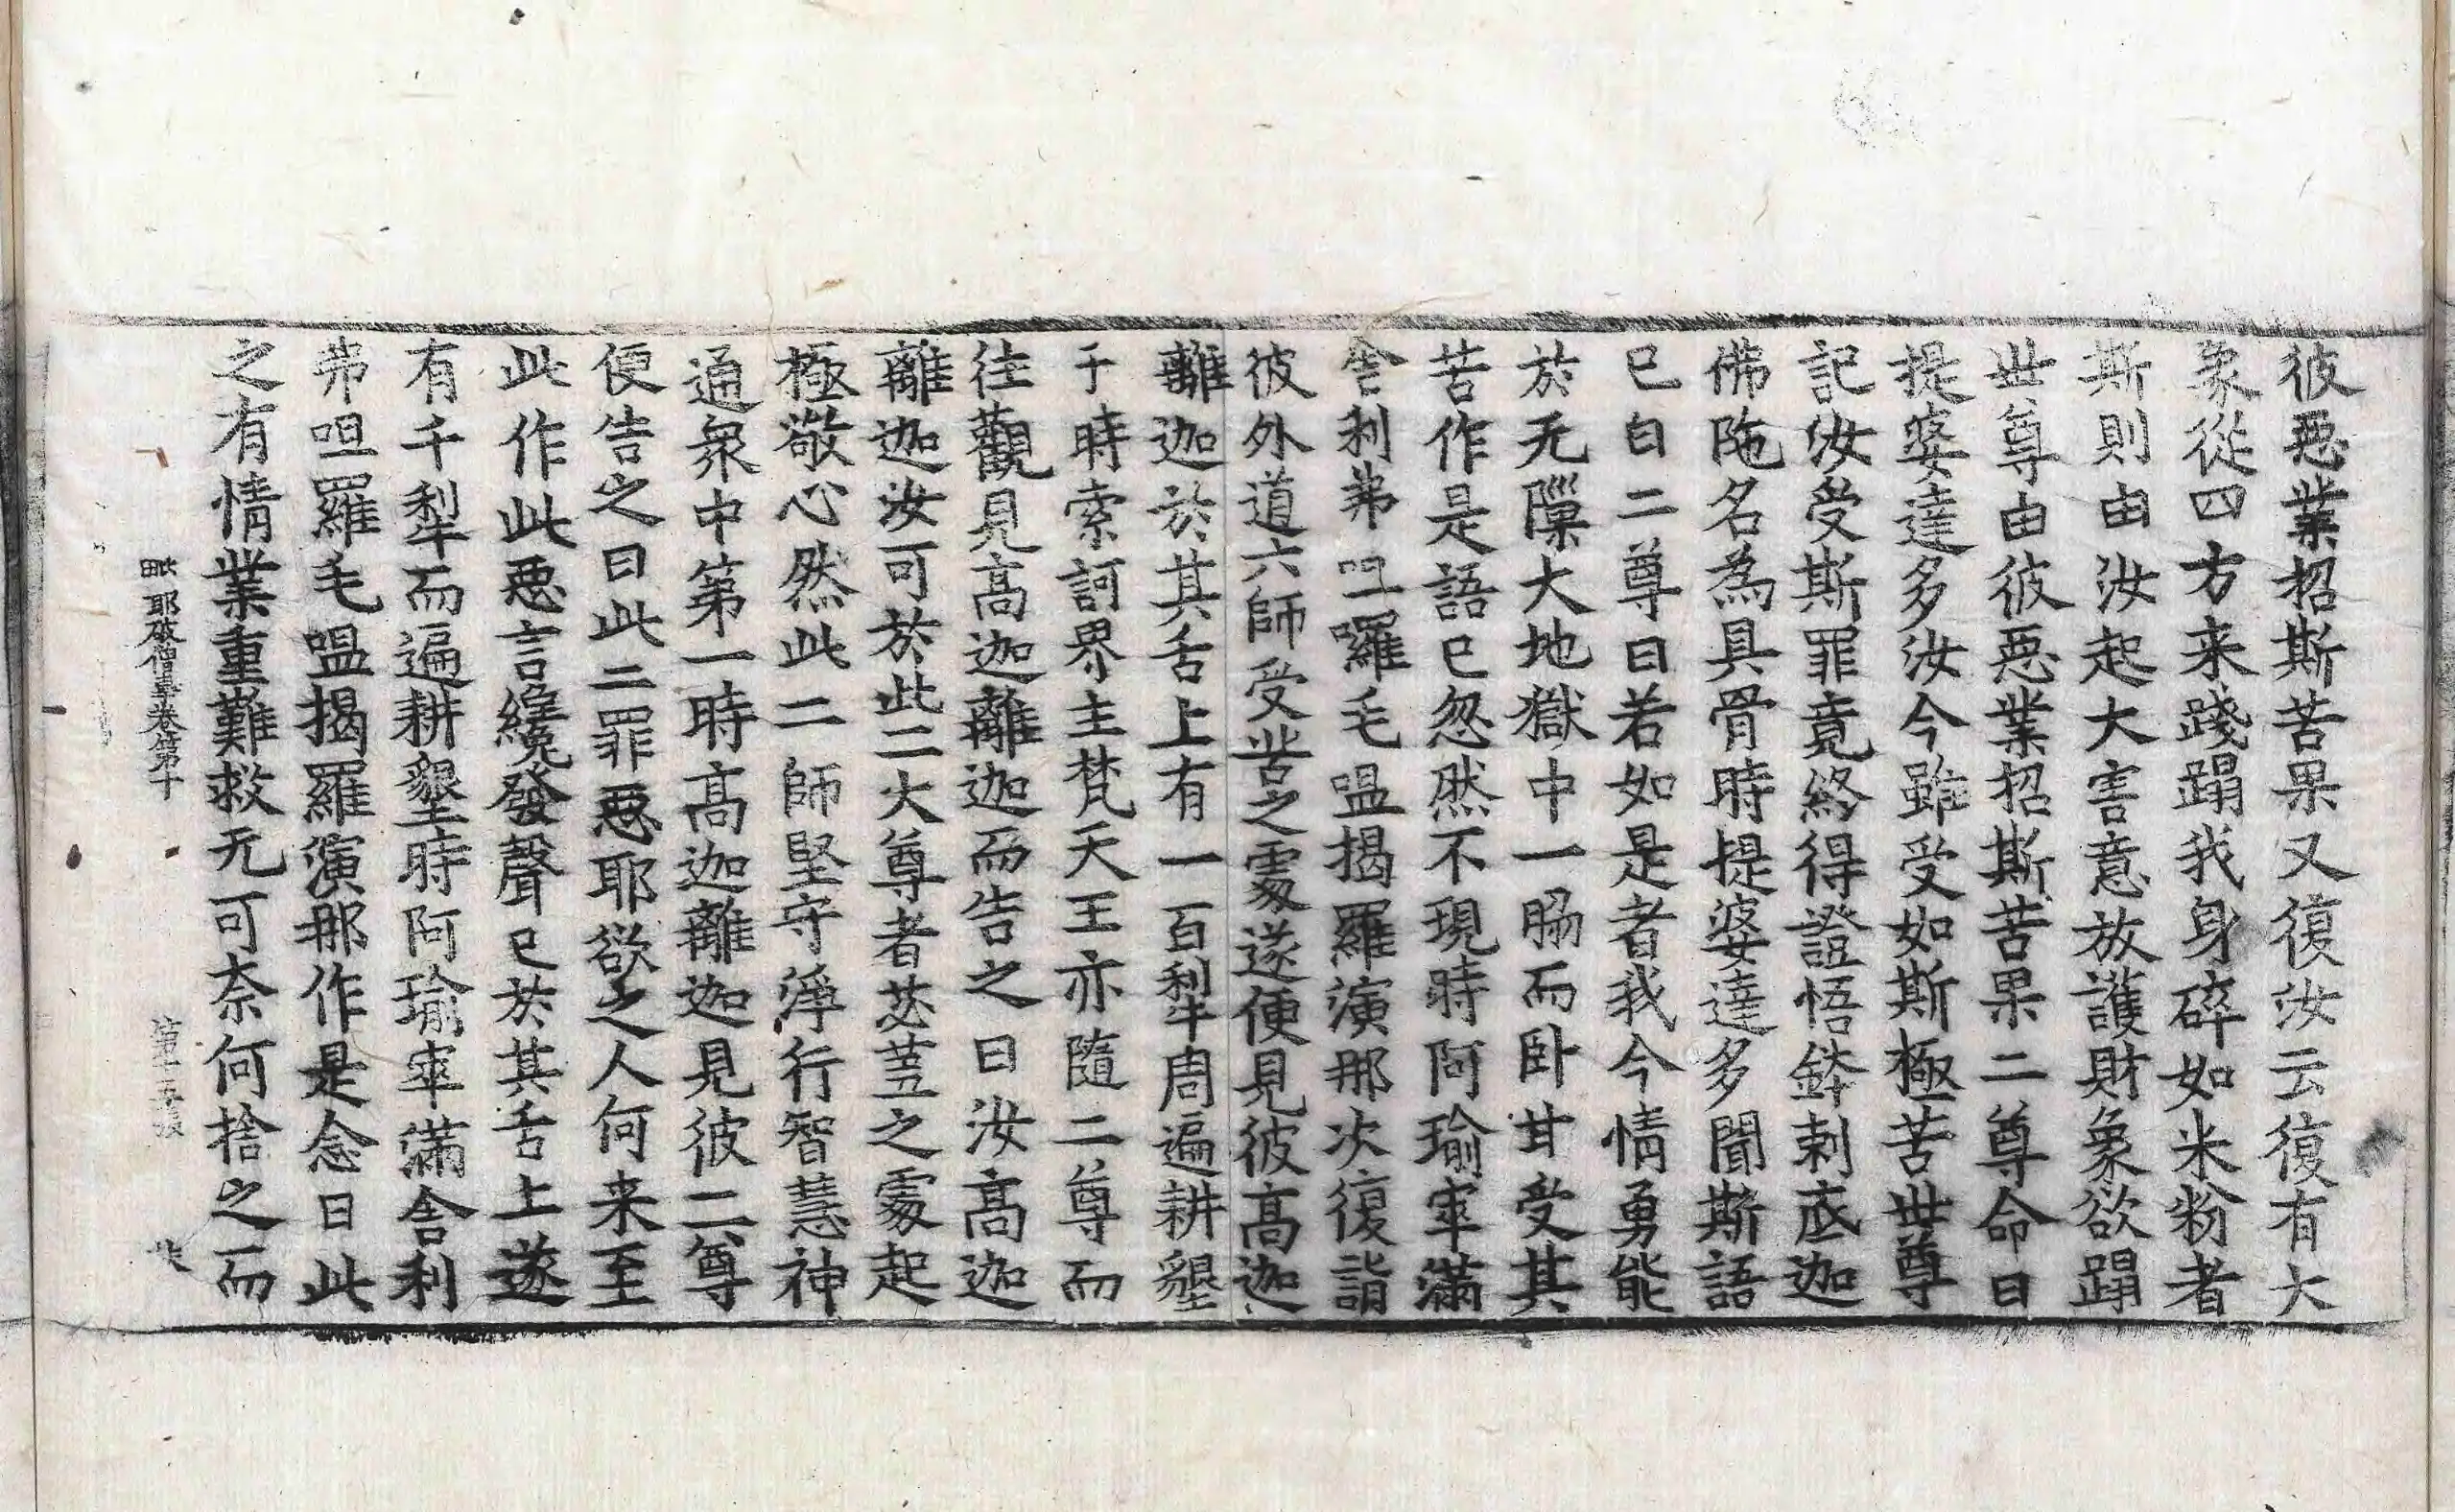 彼惡業招斯苦果又復汝云復有大
象從四方来踐蹋我身碎如米粉者
斯則由汝起大害意放護財象欲蹋
世尊由彼惡業招斯苦果二尊命曰
提婆達多汝今雖受如斯極苦世尊
記汝受斯罪竟終得證悟鉢剌底迦
佛陁名為具骨時提婆達多聞斯語
已白二尊曰若如是者我今情勇能
於无隟大地獄中一脇而卧甘受其
苦作是語已忽然不現時阿瑜率滿
舍利弗呾囉毛嗢揭羅演那次復詣
彼外道六師受苦之處遂便見彼高迦
離迦於其舌上有一百犁周遍耕墾
于時索訶界主梵天王亦隨二尊而
往觀見高迦離迦而告之曰汝高迦
離迦汝可於此二大尊者苾蒭之處起
極敬心然此二師堅守淨行智慧神
通衆中第一時高迦離迦見彼二尊
便告之曰此二罪惡耶欲之人何来至
此作此惡言纔發聲已於其舌上遂
有千犁而遍耕墾時阿瑜率滿舍利
弗呾羅毛嗢揭羅演那作是念曰此
之有情業重難救无可奈何捨之而
毗耶破僧事卷第十 第十五張